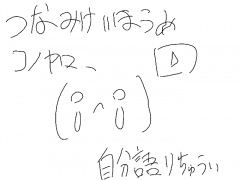 つなみけいほうめ
コノヤロー
自分語りちゅうい